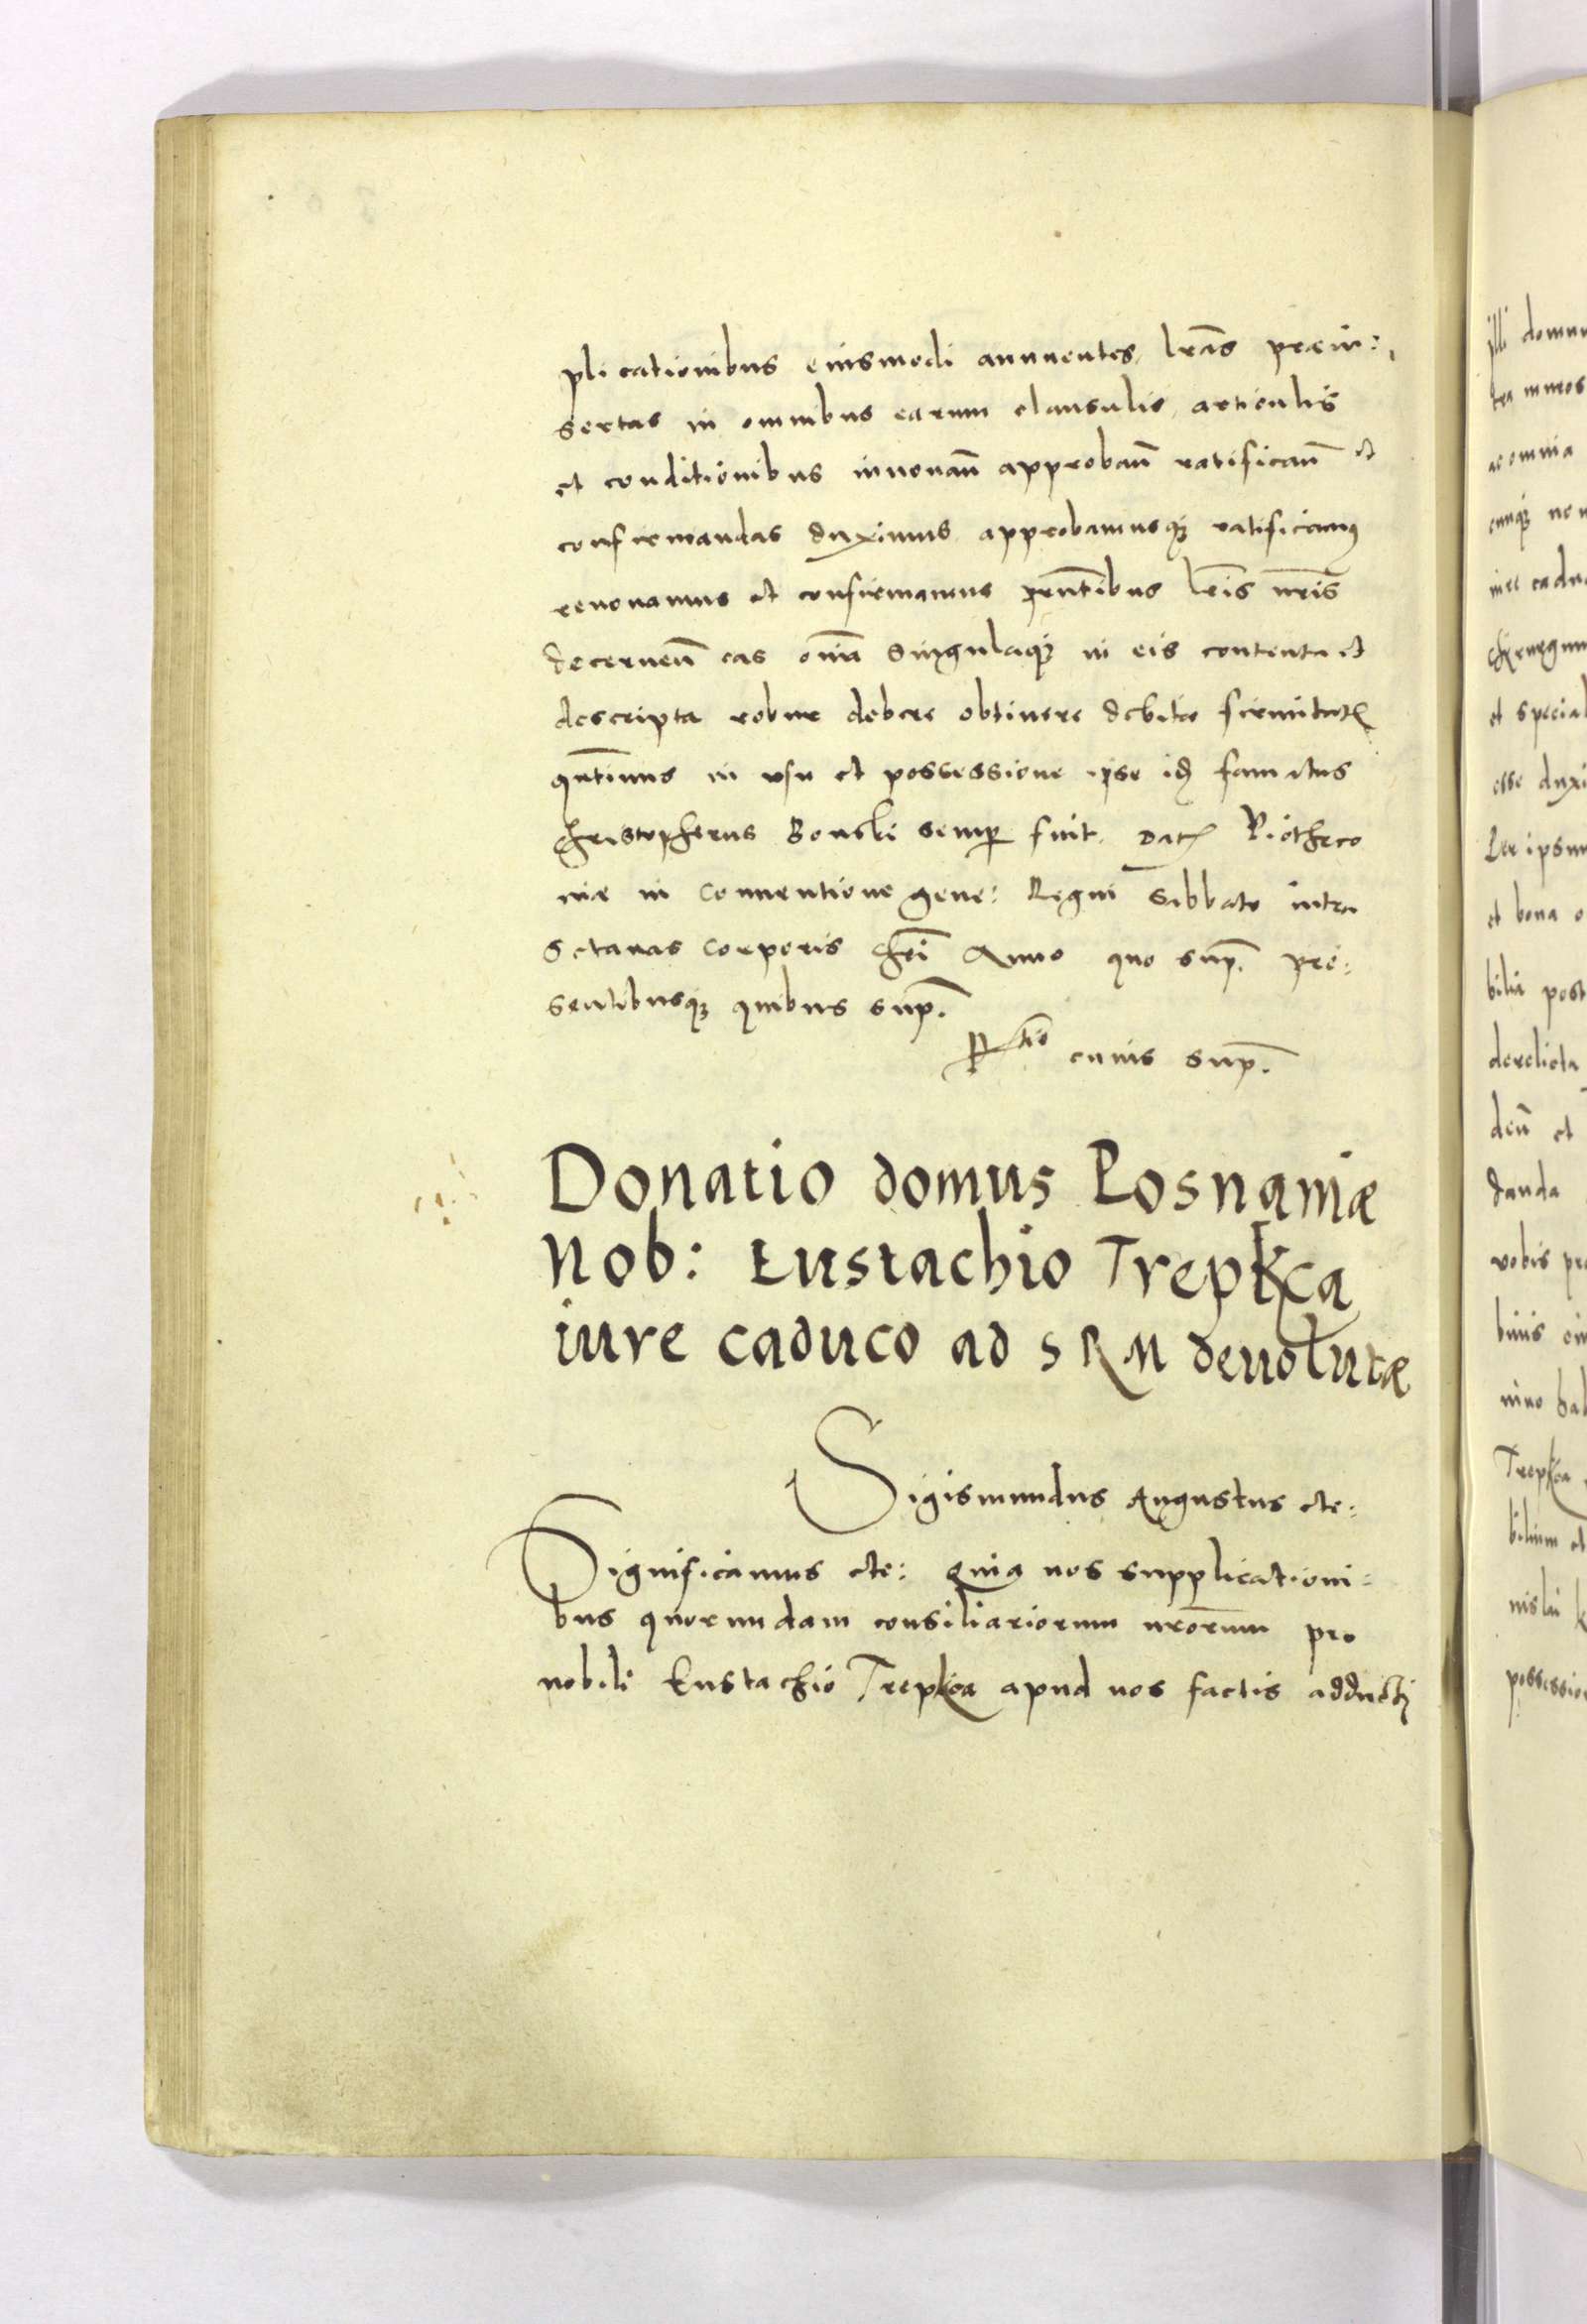 plicationibus eiusmodi annuentes, lr̃as præin:
sertas in omnibus earum clausulis, articulis
et conditionibus innouañ approbañ ratificañ et
confirmandas duximus, approbamusq; ratificamus
renouamus et confirmamus pñtibus lr̃is nr̃is
decerneñ eas om̃ia singulaq; in eis contenta et
descripta robur debere obtinere debitæ firmitatis
quñtinus in vsu et possessione ipse idem famatus
Christopherus Bonski semper fuit. Dat. Piotheco
niæ in Conuentione gene: Regni Sabbato intra
octauas Corporis Chr̃i Anno quo sup. præ:
sentibusq; quibus sup.
R^tio cuius sup.
Donatio domus Posnaniæ
Nob: Eustachio Trepkca
iure caduco ad S R M deuolutæ
Sigismundus Augustus etc:
Significamus etc: quia nos supplicationi:
bus quorundam consiliariorum nr̃orum pro
nobili Eustachio Trepkca apud nos factis adducti
illi domum
tra muros
ac omnia
cunq; non
iure cadu
Chirurgum
et special
esse duxi
Per ipsum
et bona o
bilia post
derelicta
deñ et
danda
vobis pr
buius ein
nino hab
Trepkca
bilium et
nislai K
possession